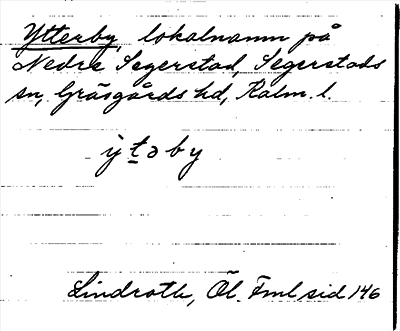 Ytterby, lokalnamn på
Nedre Segerstad, Segerstads
sn, Gräsgårds hd, Kalm. l.
ỳtəby
Lindroth, Öl. Fml sid 146